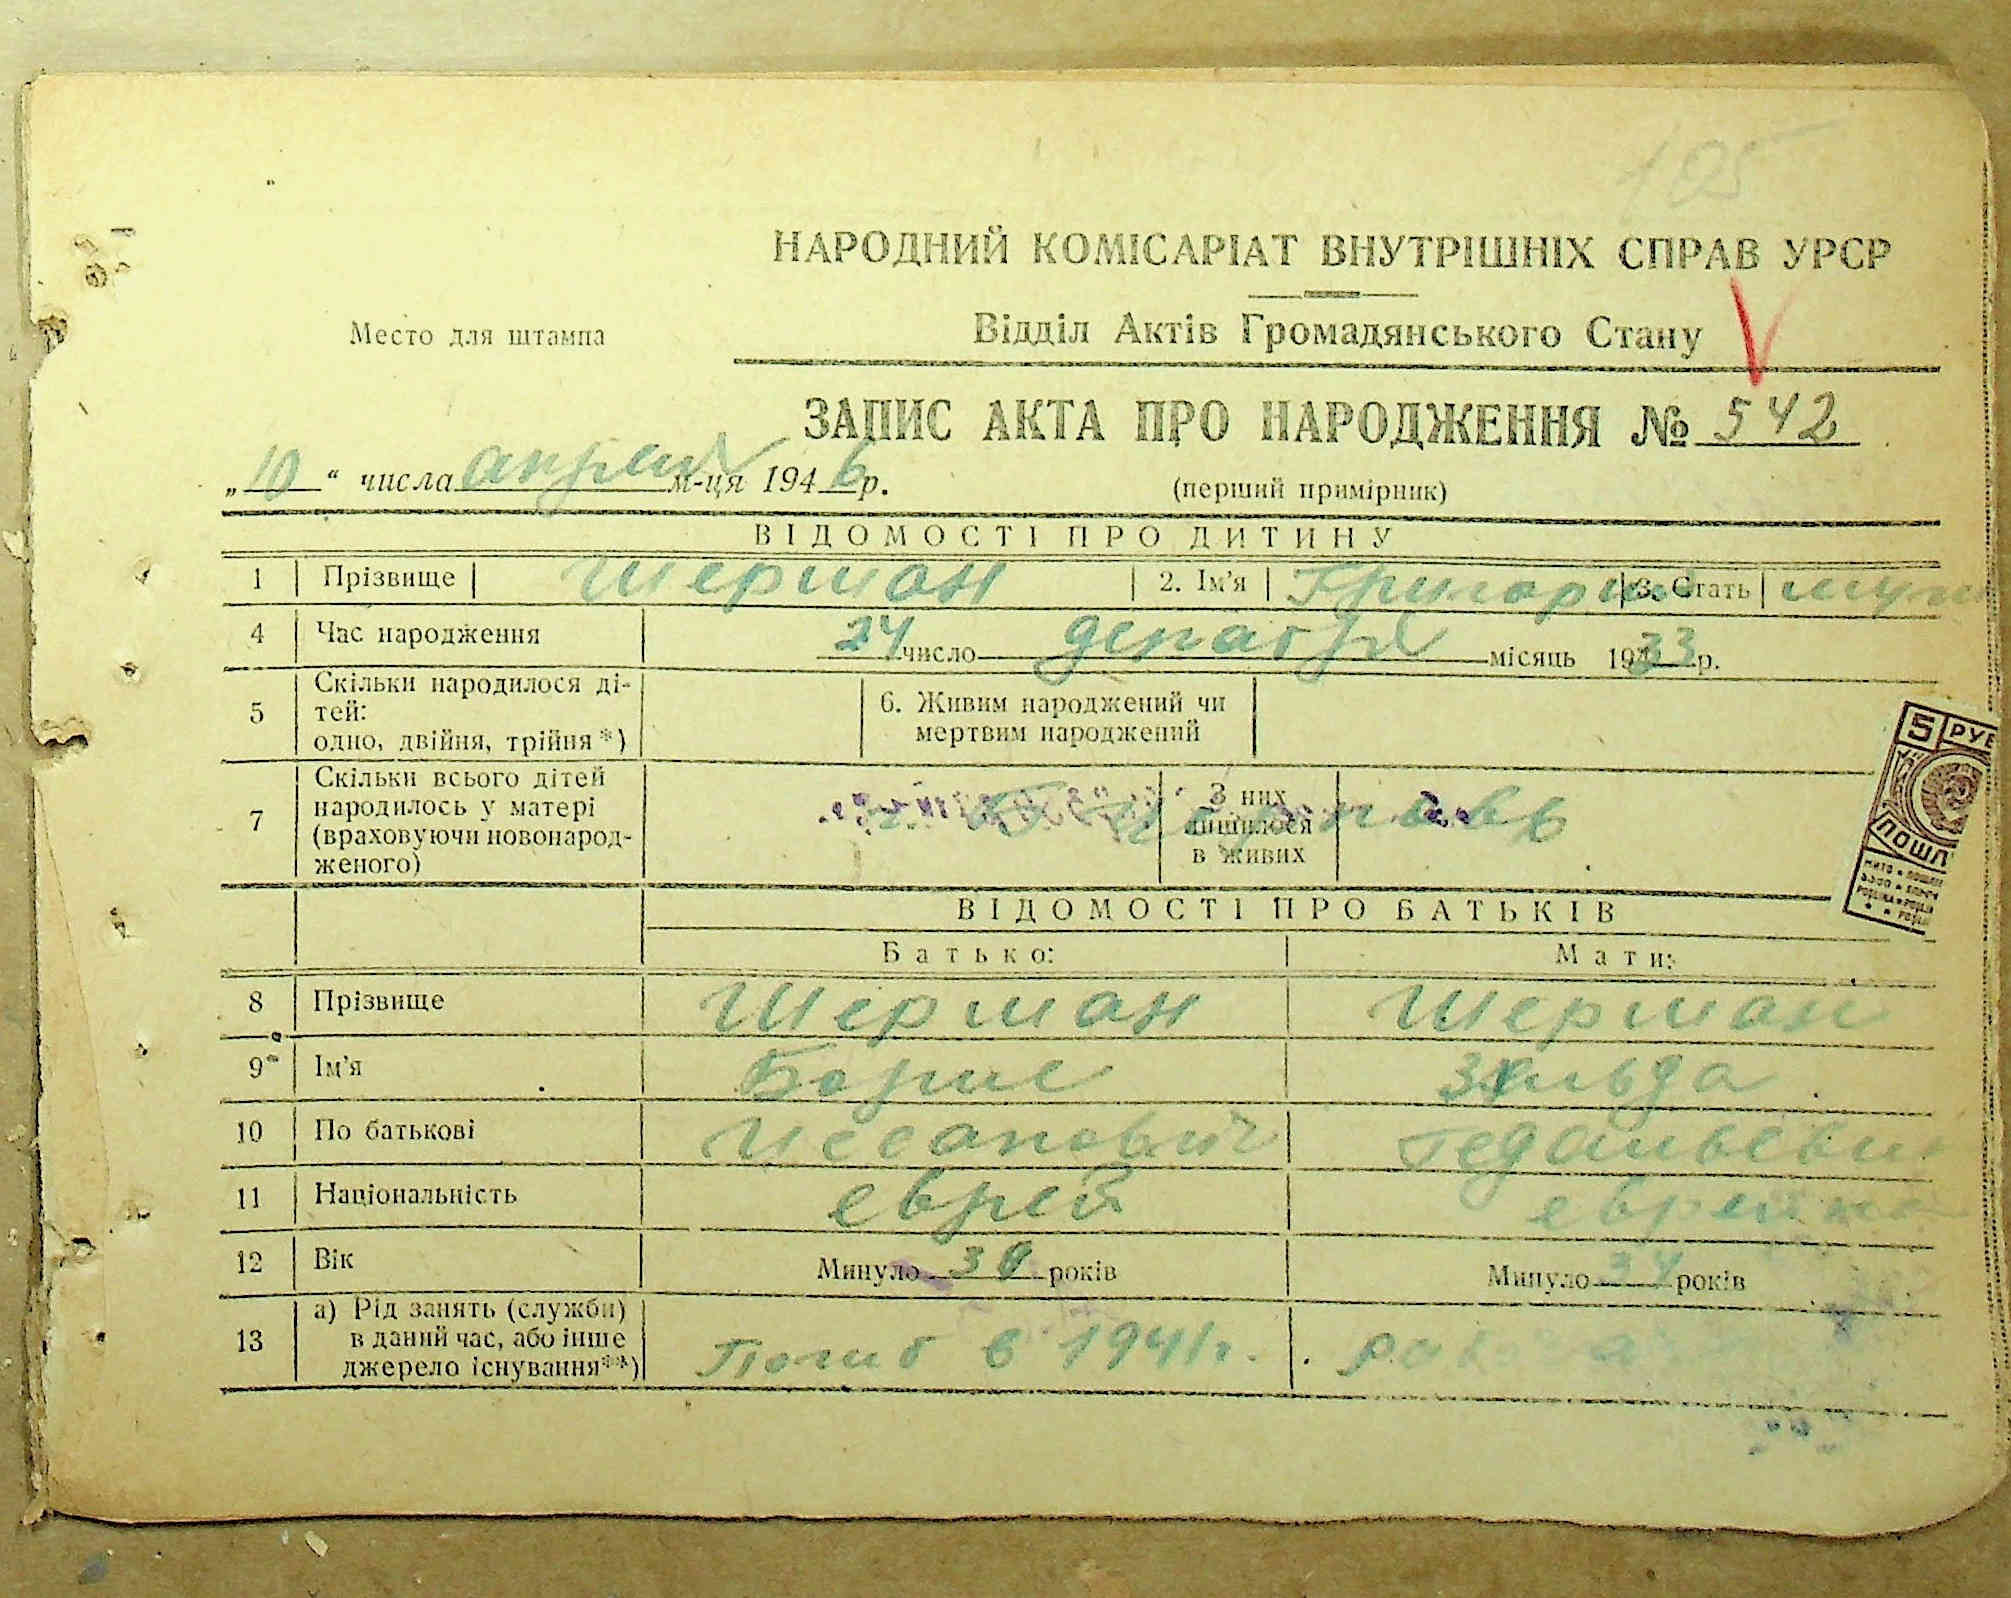 105
НАРОДНИЙ КОМІСАРІАТ ВНУТРІШНІХ СПРАВ УРСР
Место для штампа
Відділ Актів Громадянського Стану
ЗАПИС АКТА ПРО НАРОДЖЕННЯ № 542
„10“ числа апреля м-ця 1946 р.
(перший примірник)
ВІДОМОСТІ ПРО ДИТИНУ
1 Прізвище Шерман 2. Ім'я Григорий 3. Стать муж
4 Час народження 24 число декабря місяць 1933 р.
5 Скільки народилося ді-
тей:
одно, двійня, трійня *)
6. Живим народжений чи
мертвим народжений
7 Скільки всього дітей
народилось у матері
(враховуючи новонарод-
женого)
З них
лишилося
в живих
5 РУБ
ПОШЛ
ВІДОМОСТІ ПРО БАТЬКІВ
Батько: Мати:
8 Прізвище Шерман Шерман
9 Ім'я Борис Зельда
10 По батькові Иссакович Гедальеви
11 Національність еврей еврейка
12 Вік Минуло років Минуло 34 років
13 а) Рід занять (служби)
в даний час, або інше
джерело існування**)
Погиб в 1941 г.